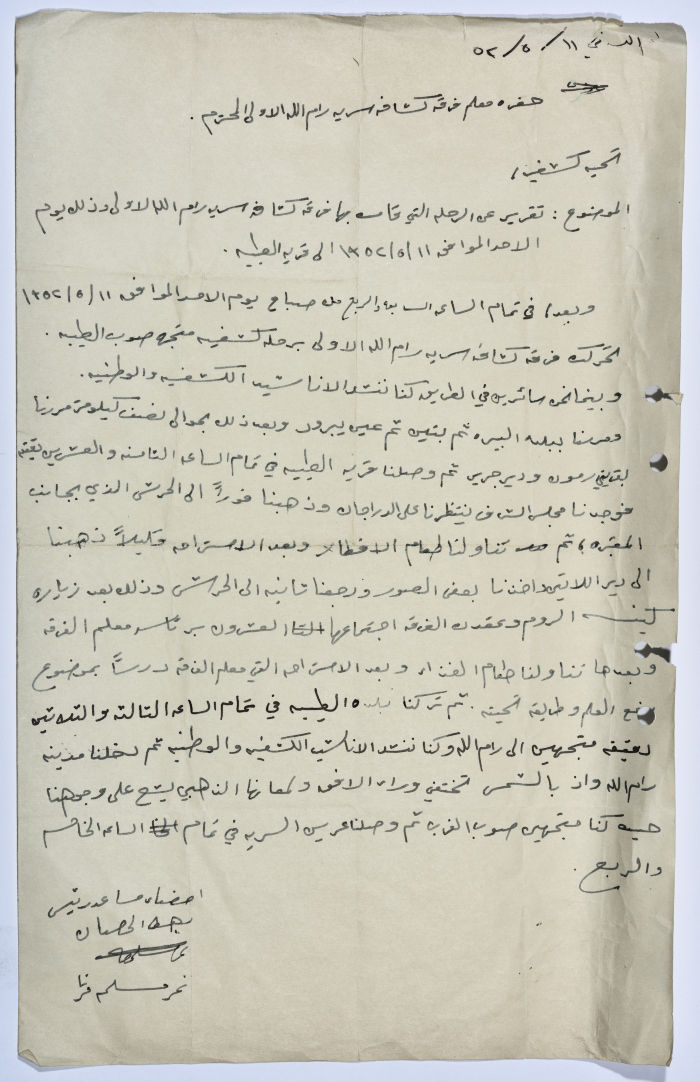 في ١١ / ٥ / ٥٢
حضره معلم فرقة كشافه سريه رام الله الاولى المحترم .
تحيه كشفيه ،
الموضوع : تقرير عن الرحله التي قامت بها فرقة كشافة سريه رام الله الاولى وذلك يوم
الاحد الموافق ١١ / ٥ / ١٩٥٢ الى قريه الطيبه .
وبعد ، في تمام الساعه السابعه والربع من صباح يوم الاحد الموافق ١١ / ٥ / ١٩٥٢
تحركت فرقة كشافة سريه رام الله الاولى برحله كشفيه متجهه صوب الطيبه .
وبينما نحن سائرين في الطريق كنا ننشد الاناشيد الكشفيه والوطنيه .
ومررنا ببلده البيره ثم بتين ثم عين يبرود وبعد ذلك بحوالي نصف كيلومتر مررنا
رمون ودير جرير ثم وصلنا قريه الطيبه في تمام الساعه الثامنه والعشرين دقيقه
فوجدنا مجلس الشرف ينتظرنا على الدراجات وذهبنا فوراً الى الحرش الذي بجانب
المقبره ، ثم تناولنا طعام الافطار وبعد الاستراحه قليلاً ذهبنا
الى دير اللاتين واخذنا بعض الصور ورجعنا ثانيه الى الحرش وذلك بعد زياره
كنيسة الروم وعقدت الفرقه اجتماعها العشرون برئاسه معلم الفرقه
وبعدها تناولنا طعام الغذاء وبعد الاستراحه القى معلم الفرقه درساً بموضوع
رفع العلم وطريقه تحيته . ثم تركنا بلده الطيبه في تمام الساعه الثالثه والثلاثين
دقيقه متجهين الى رام الله وكنا ننشد الاناشيد الكشفيه والوطنيه ثم دخلنا مدينه
رام الله واذ بالشمس تختفي وراء الافق ولمعانها الذهبي يشع على وجوهنا
حيث كنا متجهين صوب الغرب ثم وصلنا عرين السريه في تمام الساعه الخامسه
والربع .
امضاء مساعد رئيس
الحصان
نمر مسلم